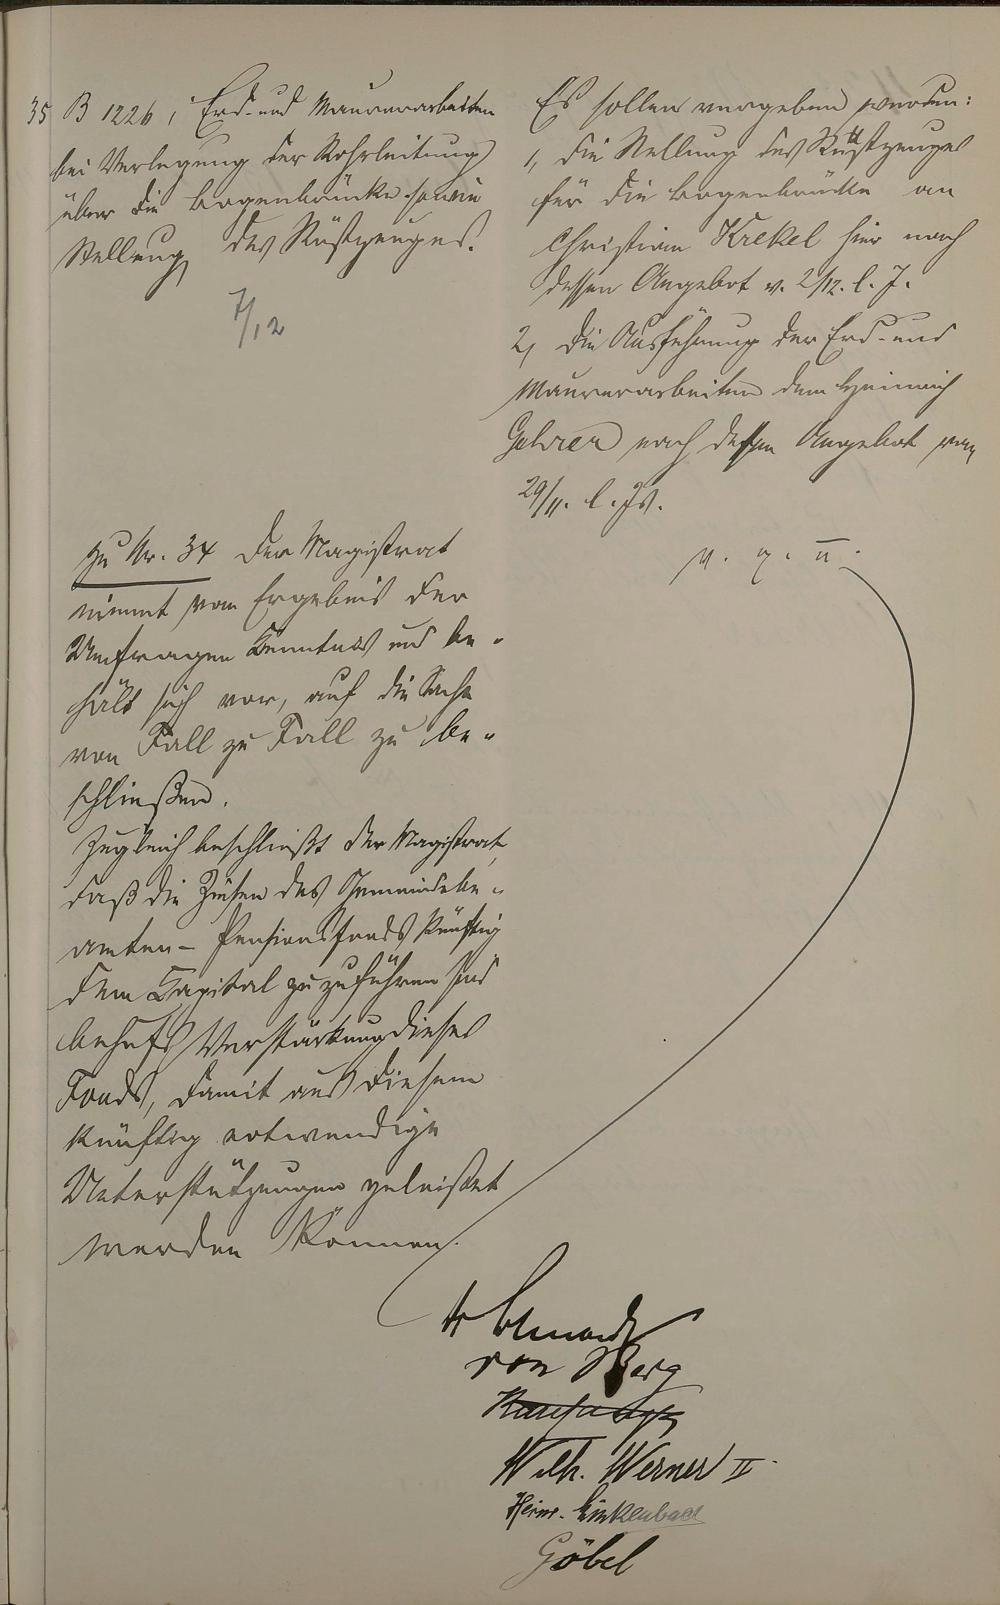 35 B 1226, Erd- und Maurerarbeiten
bei Verlegung der Rohrleitung
über die Bogenbrücke sowie
Stellung des Rüstzeuges.
7/12
Es sollen vergeben werden:
1, die Stellung des Rüstzeuges
für die Bogenbrücke an
Christian Krekel hier nach
dessen Angebot v. 2/12. l. J.
2, die Ausführung der Erd- und
Maurerarbeiten dem Heinrich
Gehrer nach dessen Angebot vom
29/11. l. Js.
v. g. u.
zu Nr. 34 Der Magistrat
nimmt vom Ergebnis der
Umfragen Kenntnis und be-
hält sich vor, auf die Sache
von Fall zu Fall zu be-
schließen.
Zugleich beschließt der Magistrat,
daß die Zinsen des Gemeindebe-
amten- Pensionsfonds künftig
dem Kapital zuzuführen sind
behufs Verstärkung dieses
Fonds, damit aus diesem
künftig notwendige
Unterstützungen geleistet
werden können.
von Berg
Wilh. Werner II.
Heinr. Linkenbach
Göbel